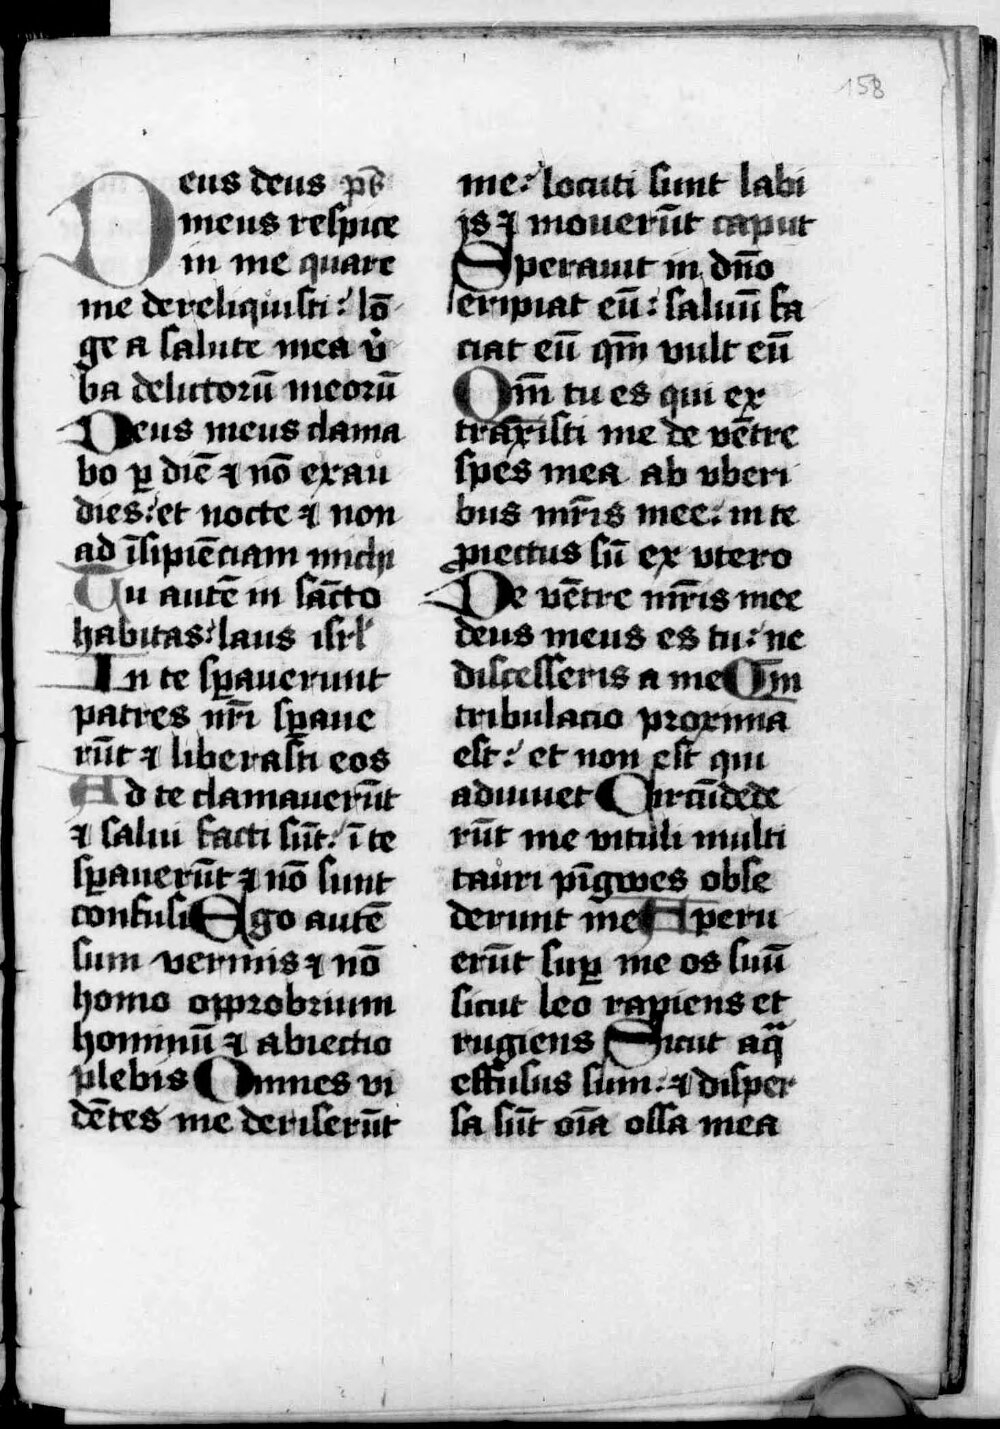 158
Deus deus ps̄
meus respice
in me quare
me dereliquisti: lō
ge a salute mea v̾
ba delictorū meorū
Deus meus clama
bo ꝑ diē ⁊ nō exau
dies: et nocte ⁊ non
ad īsipiēciam michi
Tu autē in sācto
habitas: laus isrl̾
In te sꝑauerunt
patres nr̄i sꝑaue
rūt ⁊ liberasti eos
Ad te clamauerūt
⁊ salui facti sūt: ī te
sꝑauerūt ⁊ nō sunt
confusi Ego autē
sum vermis ⁊ nō
homo opprobrium
hominū ⁊ abiectio
plebis Omnes vi
dētes me deriserūt
me: locuti sunt labi
js ⁊ mouerūt caput
Sperauit in dn̄o
eripiat eū: saluū fa
ciat eū qm̄ vult eū
Qm̄ tu es qui ex
traxisti me de vētre
spes mea ab vberi
bus mr̄is mee: in te
ꝓiectus sū ex vtero
De vētre mr̄is mee
deus meus es tu: ne
discesseris a me Qm̄
tribulacio proxima
est: et non est qui
adiuuet Circūdede
rūt me vituli multi
tauri pīgwes obse
derunt me Aperu
erūt suꝑ me os suū
sicut leo rapiens et
rugiens Sicut aqᷓ
effusus sum: ⁊ disper
sa sūt oīa ossa mea